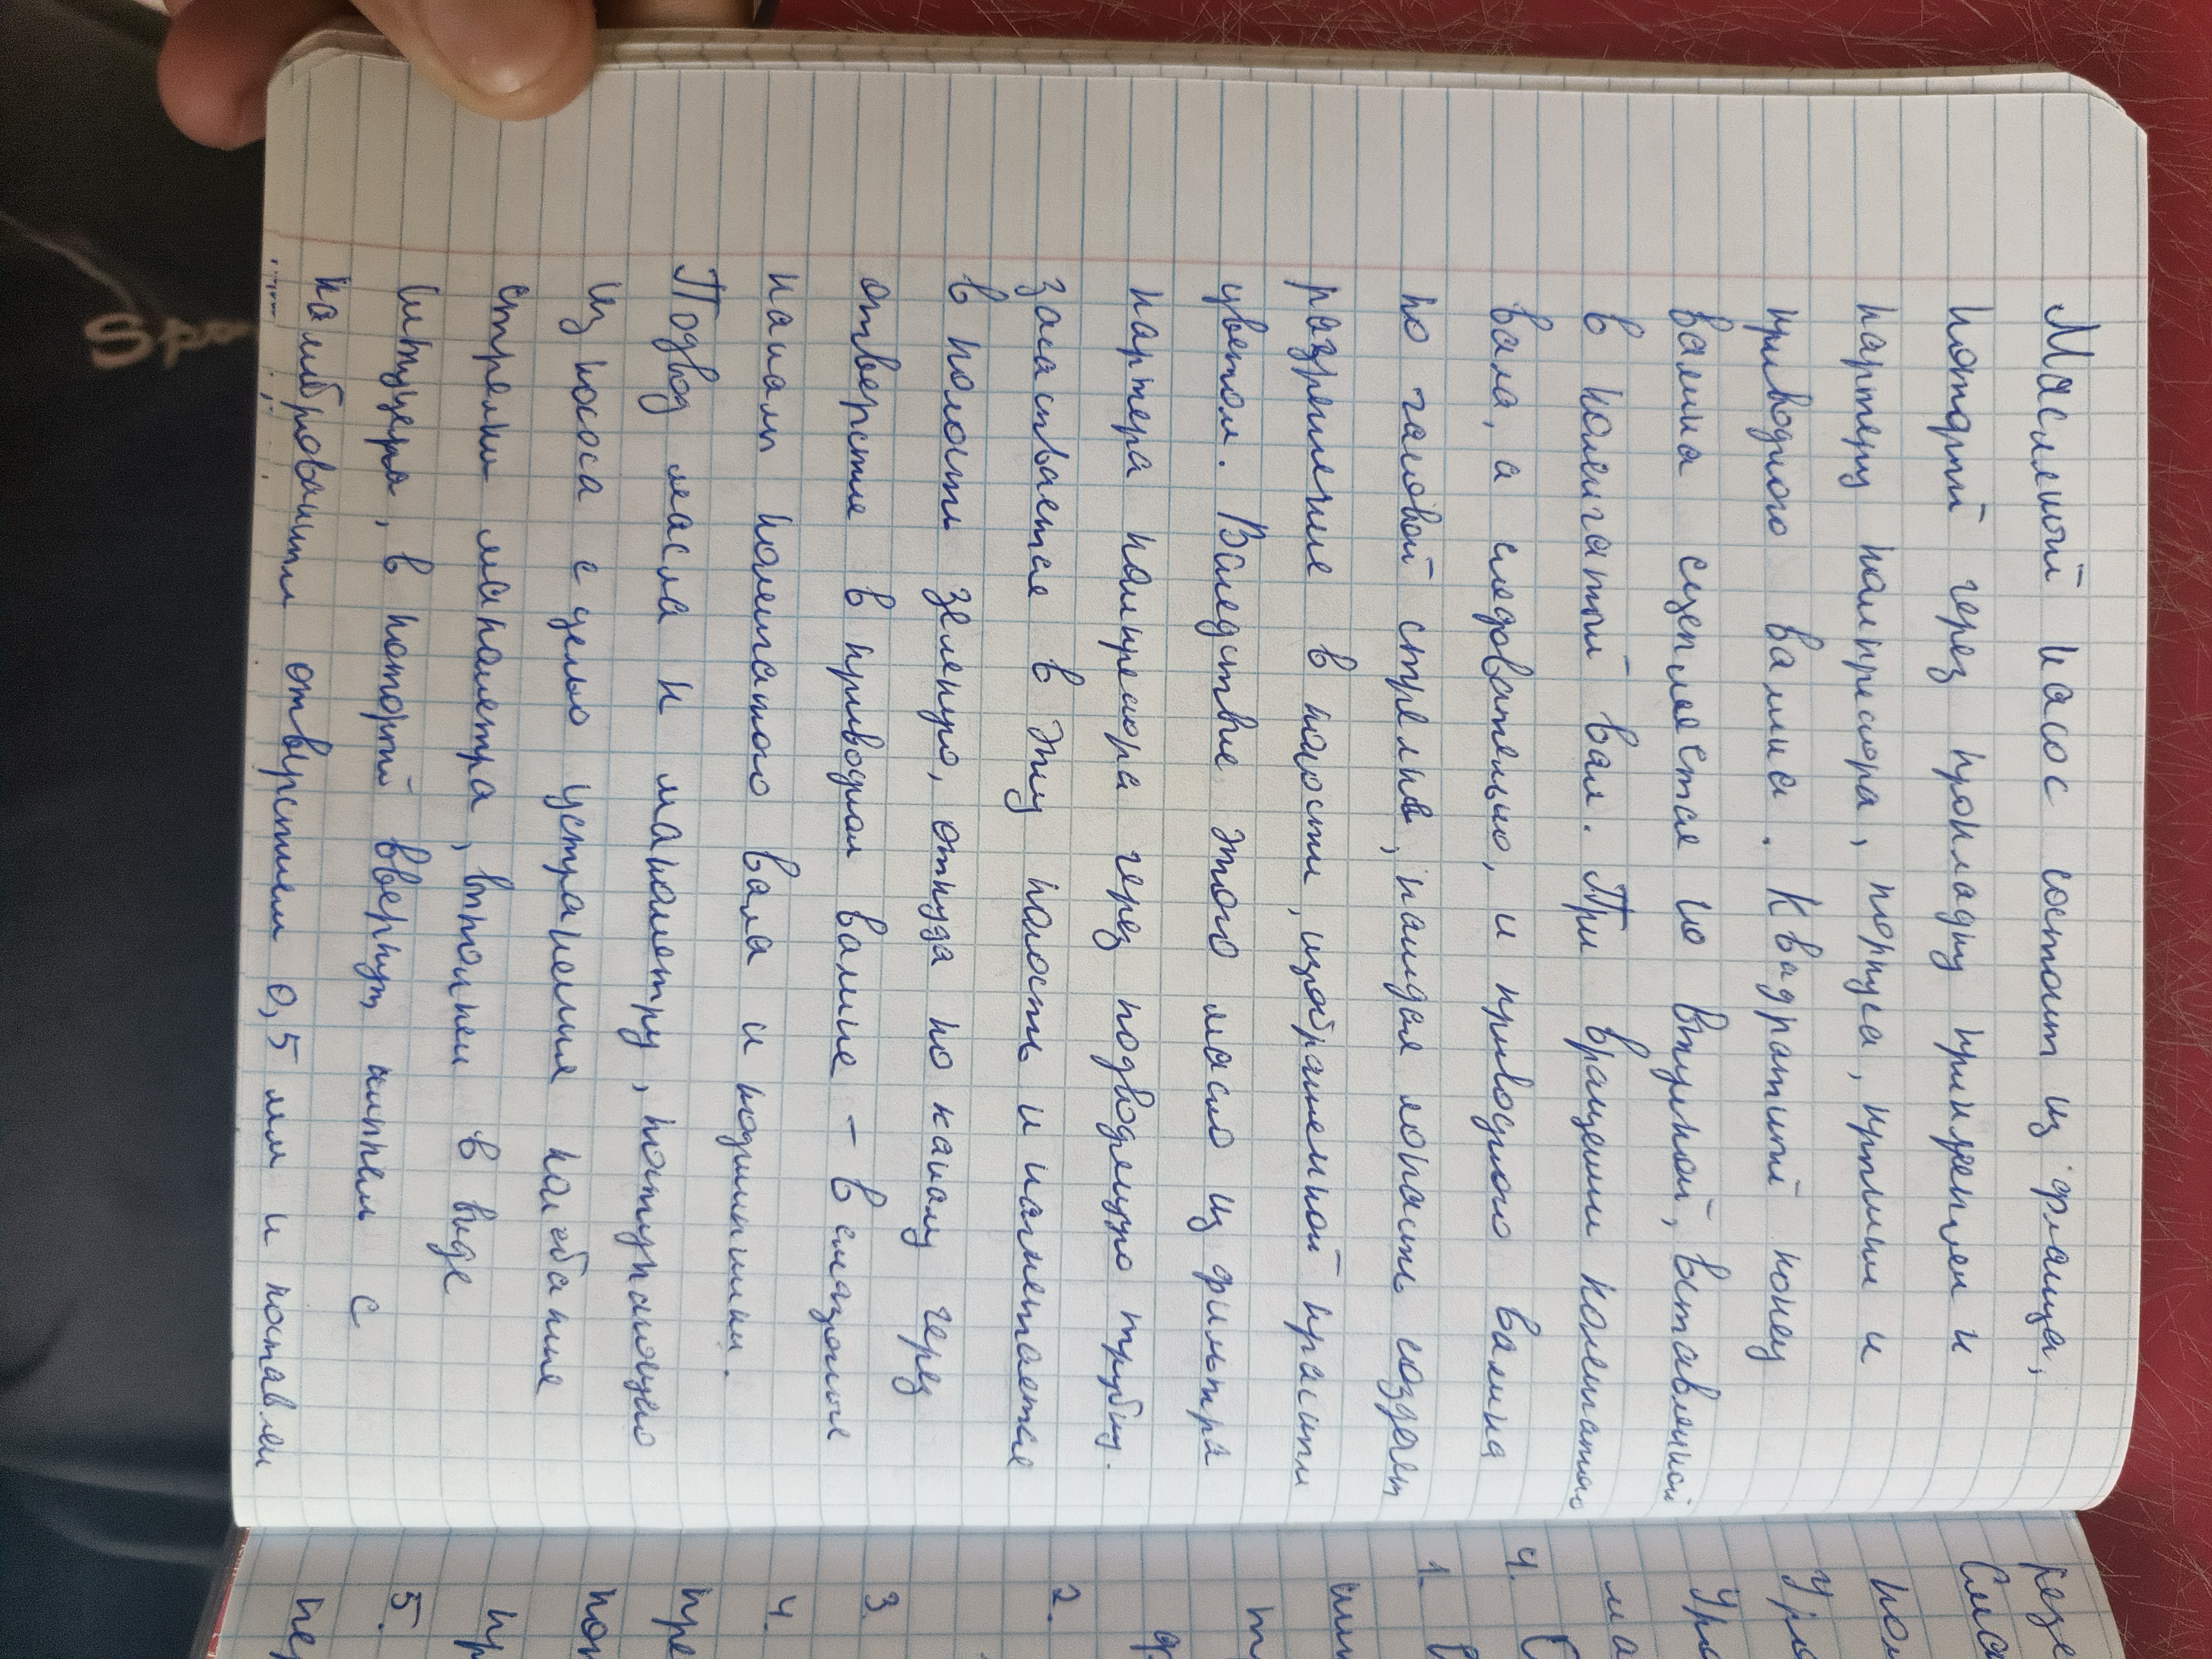 Масляный насос состоит из фланца,
который через прокладку прикреплен к
картеру компрессора, корпуса, крышки и
приводного валика. Квадратный конец
валика сцепляется со втулкой, вставленной
в коленчатый вал. При вращении коленчатого
вала, а следовательно, и приводного валика
по часовой стрелке, каждая лопасть создает
разрежение в полости, изображенной красным
цветом. Вследствие этого масло из фильтра
картера компрессора через подводящую трубку.
засасывается в эту полость и нагнетается
в полость зеленую, откуда по каналу через
отверстие в приводном валике – в смазочные
каналы коленчатого вала и подшипники.
Подвод масла к манометру, поступающего
из насоса с целью устранения колебание
стрелки манометра, выполнен в виде
штуцера, в который ввернут ниппель с
калиброванным отверстием 0,5 мм и поставлен
Spo
Сма
4.
1.
2.
3.
4.
5.